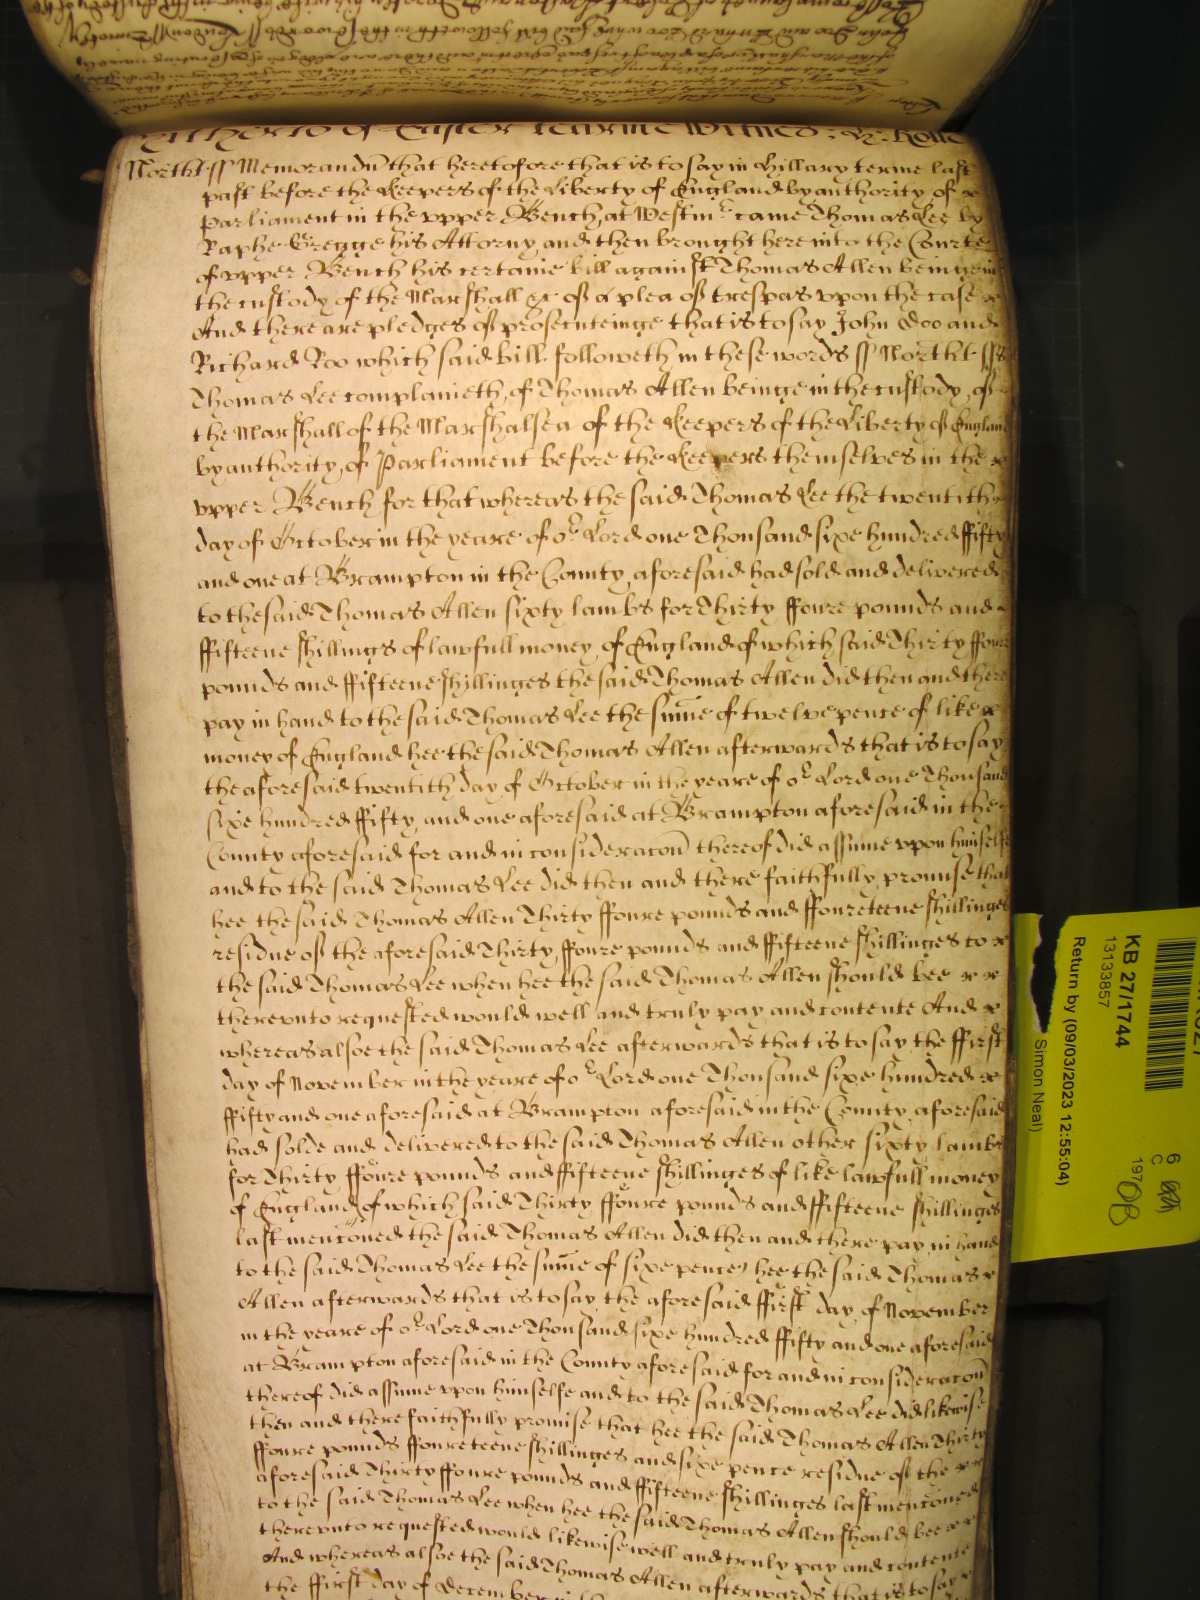 of Easter Tearme Witnes: H: Rolle
Northt ss Memorand̄ that heretofore that is to say in Hillary terme last
past before the Keepers of the Liberty of England by authority of
Parliament in the vpper Bench at Westmr came Thomas Lee by
Raphe Gregge his Attorny and then brought here into the Courte
of vpper Bench his certaine bill against Thomas Allen beinge in
the custody of the Marshall &c of a plea of trespas vpon the case
And there are pledges of prosecuteinge that is to say John Doo and
Richard Roo which said bill followeth in these words ss Northt ss
Thomas Lee complaineth of Thomas Allen beinge in the custody of
the Marshall of the Marshalsea of the Keepers of the Liberty of England
by authority of Parliament before the Keepers themselves in the
vpper Bench for that whereas the said Thomas Lee the twentith
day of October in the yeare of or Lord one Thousand sixe hundred ffifty
and one at Brampton in the County aforesaid had sold and delivered
to the said Thomas Allen sixty lambs for Thirty ffoure pounds and
ffifteene shillings of lawfull money of England of which said Thirty ffoure
pounds and ffifteene shillinges the said Thomas Allen did then and there
pay in hand to the said Thomas Lee the sum̄e of twelve pence of like
money of England hee the said Thomas Allen afterwards that is to say
the aforesaid twentith day of October in the yeare of or Lord one Thousand
sixe hundred ffifty and one aforesaid at Brampton aforesaid in the
County aforesaid for and in consideracōn thereof did assume vpon himselfe
and to the said Thomas Lee did then and there faithfully promise that
hee the said Thomas Allen Thirty ffoure pounds and ffoureteene shillinges
residue of the aforesaid Thirty ffoure pounds and ffifteene shillinges to
the said Thomas Lee when hee the said Thomas Allen should bee
therevnto requested would well and truly pay and contente And
whereas alsoe the said Thomas Lee afterwards that is to say the ffirst
day of November in the yeare of or Lord one Thousand sixe hundred
ffifty and one aforesaid at Brampton aforesaid in the County aforesaid
had solde and delivered to the said Thomas Allen other sixty lambs
for Thirty ffoure pounds and ffifteene shillinges of like lawfull money
of England of which said Thirty ffoure pounds and ffifteene shillinges
last menc̄oned the said Thomas Allen did then and there pay in hand
to the said Thomas Lee the sum̄e of sixe pence hee the said Thomas
Allen afterwards that is to say the aforesaid ffirst day of November
in the yeare of or Lord one Thousand sixe hundred ffifty and one aforesaid
at Brampton aforesaid in the County aforesaid for and in consideracōn
thereof did assume vpon himselfe and to the said Thomas Lee did likewise
then and there faithfully promise that hee the said Thomas Allen Thirty
ffoure pounds ffoureteene shillinges and sixe pence residue of the
aforesaid Thirty ffoure pounds and ffifteene shillinges last menc̄oned
to the said Thomas Lee when hee the said Thomas Allen should bee
therevnto requested would likewise well and truly pay and contente
And whereas alsoe the said Thomas Allen afterwards that is to say
the ffirst day of December
KB 27/1744
13133857
Return by (09/03/2023 12:55:04)
Simon Neal)
6
C
197